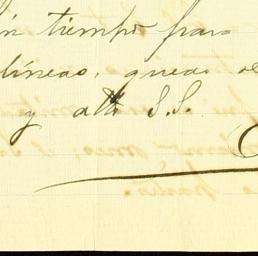 tiempo para
líneas, queda
y atto S.S.